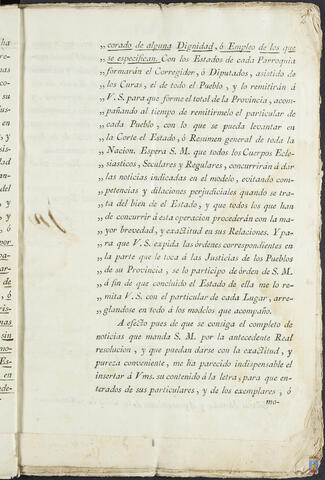 „corado de alguna Dignidad, ó Empleo de los que
„se especifican. Con los Estados de cada Parroquia
„formarán el Corregidor, ó Diputados, asistido de
„los Curas, el de todo el Pueblo, y lo remitirá á
„V. S. para que forme el total de la Provincia, acom-
„pañando al tiempo de remitirmelo el particular de
„cada Pueblo, con lo que se pueda levantar en
„la Corte el Estado, ó Resumen general de toda la
„Nacion. Espera S. M. que todos los Cuerpos Ecle-
„siasticos, Seculares y Regulares, concurrirán á dar
„las noticias indicadas en el modelo, evitando com-
„petencias y dilaciones perjudiciales quando se tra-
„ta del bien de el Estado, y que todos los que han
„de concurrir á esta operacion procederán con la ma-
„yor brevedad, y exactitud en sus Relaciones. Y pa-
„ra que V. S. expida las órdenes correspondientes en
„la parte que le toca á las Justicias de los Pueblos
„de su Provincia, se lo participo de órden de S. M.
„á fin de que concluido el Estado de ella me lo re-
„mita V. S. con el particular de cada Lugar, arre-
„glandose en todo á los modelos que acompaño.
A efecto pues de que se consiga el completo de
noticias que manda S. M. por la antecedente Real
resolucion, y que puedan darse con la exactitud, y
pureza conveniente, me ha parecido indispensable el
insertar á Vms. su contenido á la letra, para que en-
terados de sus particulares, y de los exemplares, ó
mo-